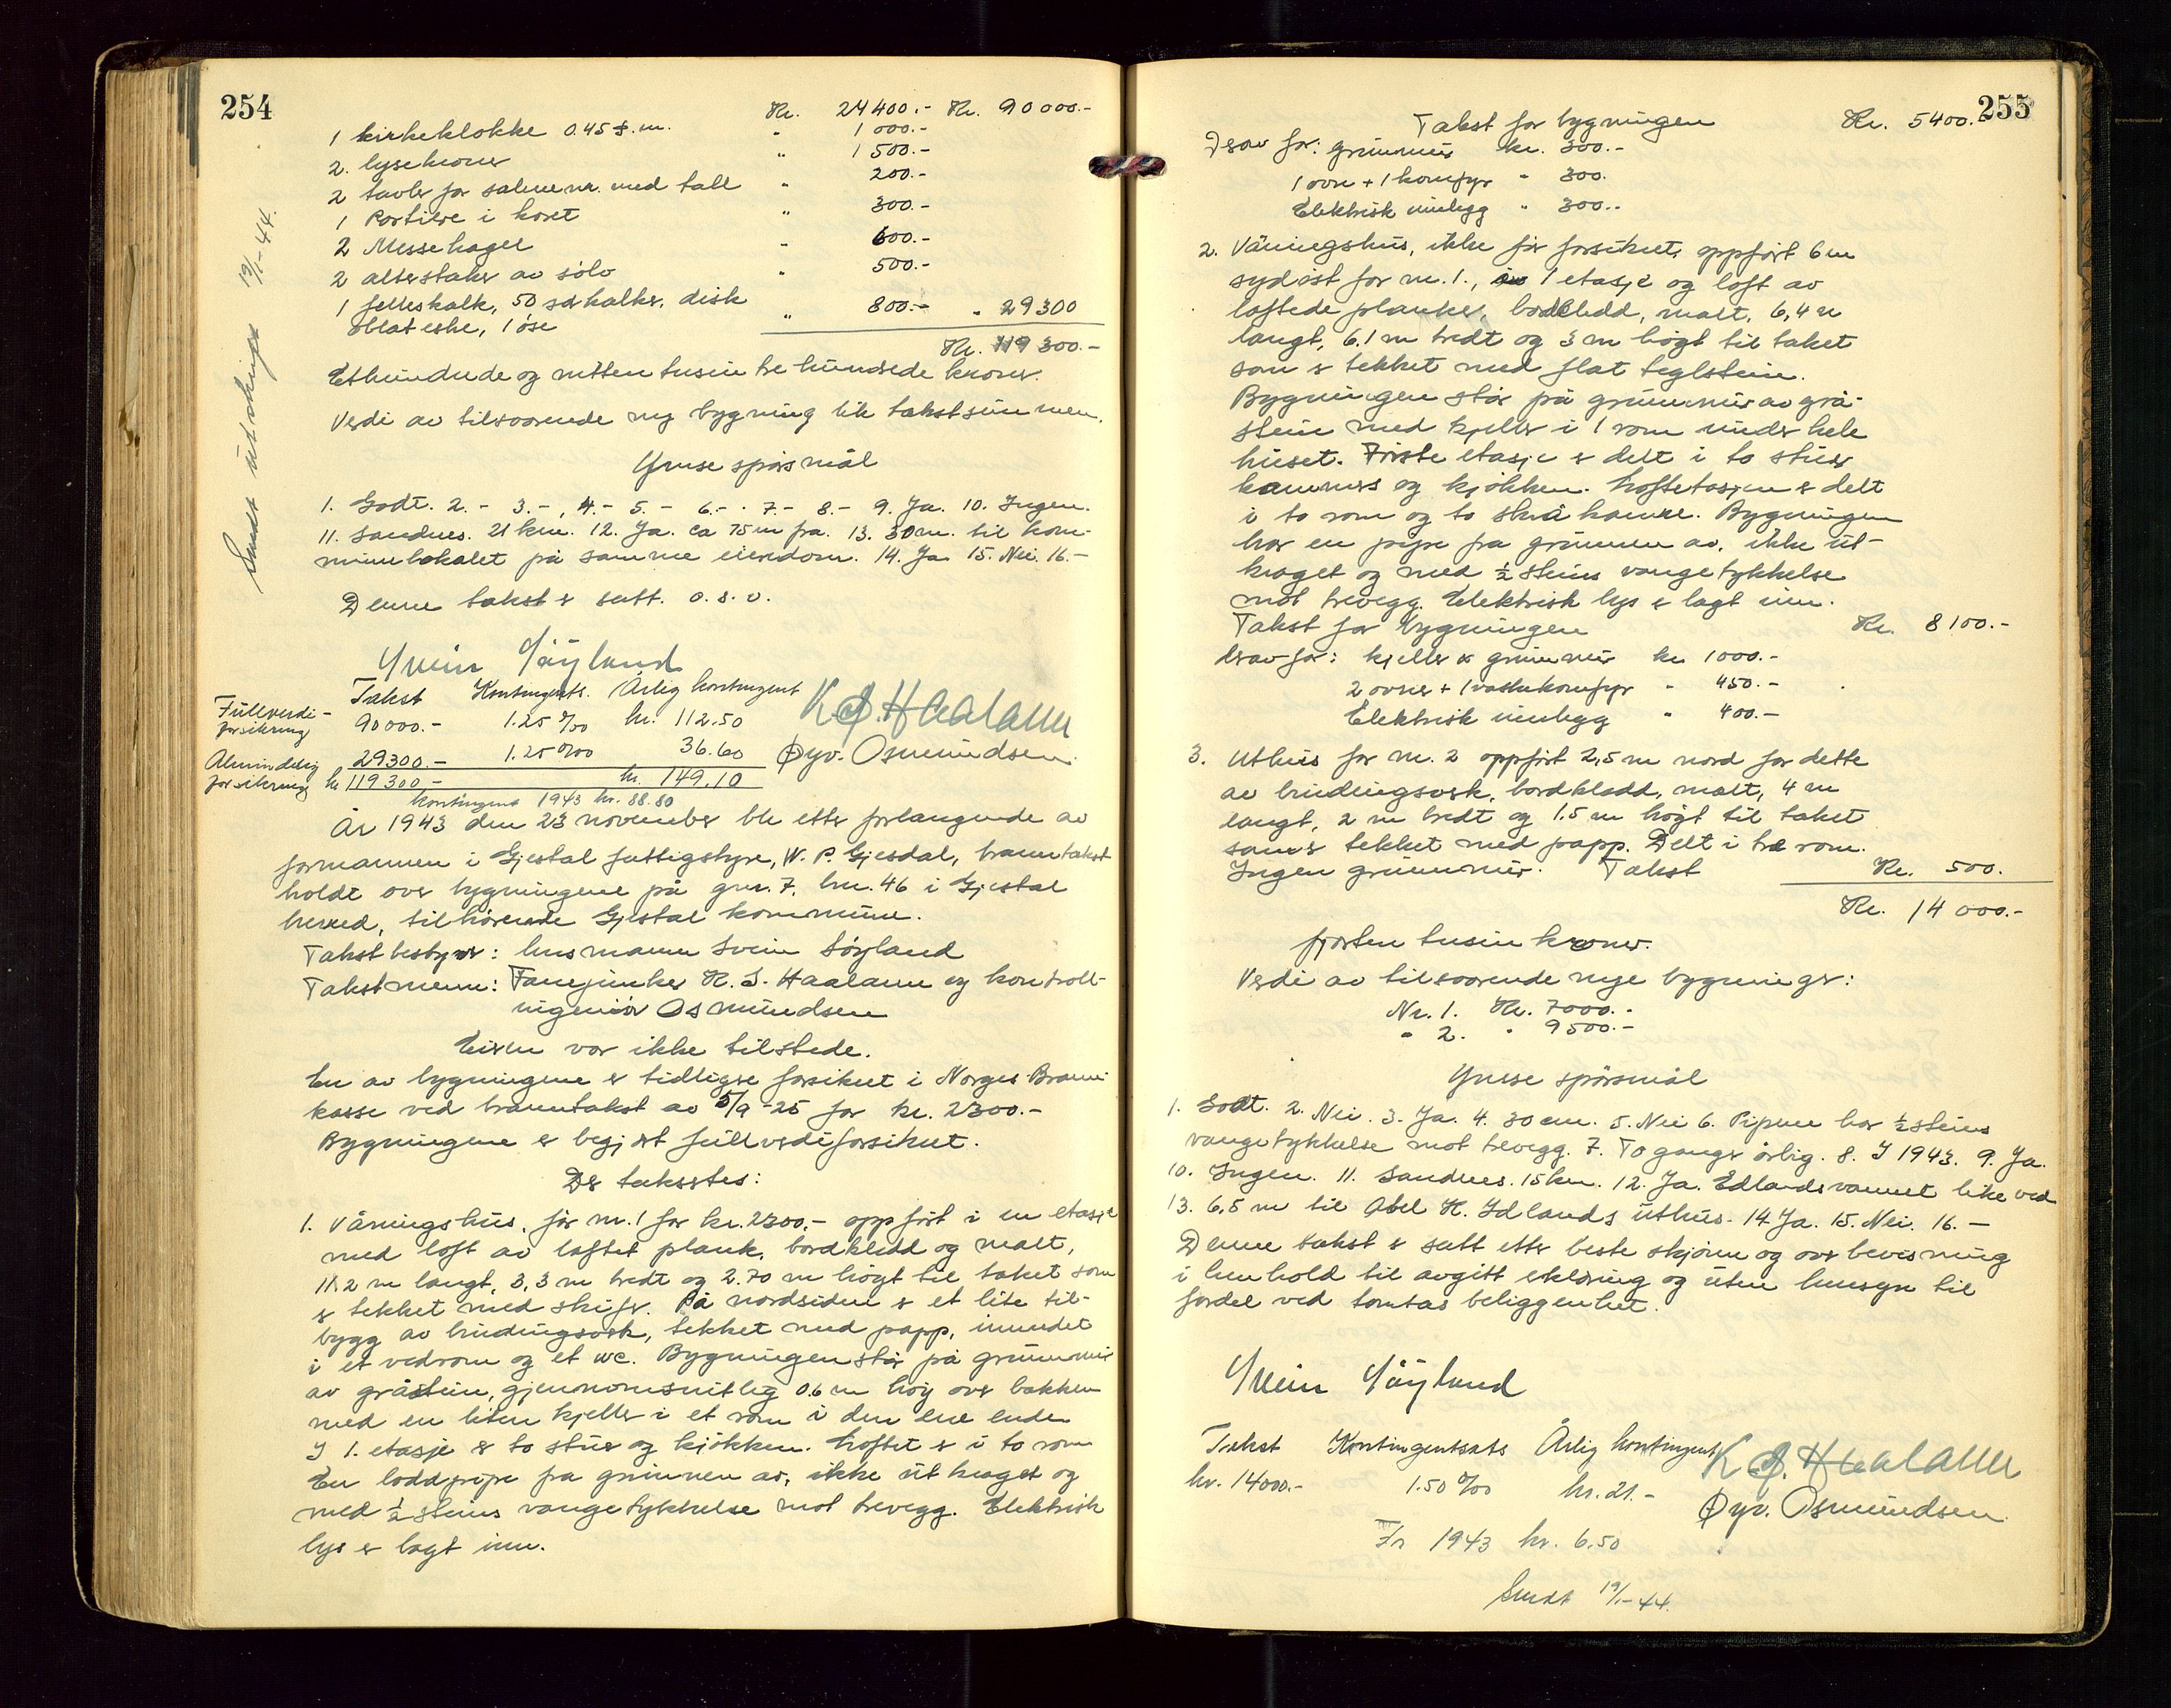 254
Kr. 24400.- Kr. 90000.-
1 kirkeklokke 0.45 t.m. " 1000.-
2. lysekroner " 1500.-
2 tavler for salmenr. med tall " 200.-
1 Portiere i koret " 300.-
2 Messehagel " 600.-
2 alterstaker av sölv " 500.-
1 felleskalk, 50 særkalker, disk
oblateske, 1 öse " 800.- " 29300
Kr. 119300.-
Ethundrede og nitten tusin tre hundrede kroner.
Verdi av tilsvarende ny bygning lik takstsummen.
Ymse spörsmål
1. Godt. 2.- 3.-, 4.- 5.- 6.-. 7.- 8.- 9. Ja. 10. Ingen.
11. Sandnes. 21 km. 12. Ja. ca 75m fra. 13. 30m. til kom-
munelokalet på samme eiendom. 14. Ja 15. Nei. 16.-
Denne takst er satt. o.s.v.
Sendt utskrift 19/1-44.
Svein Söyland
Takst Kontingents. Årlig kontingent
Fullverdi-
forsikring 90000.- 1.25 0/00 kr. 112.50
K. S. Haaland
Almindelig 29300.- 1.25 0/00 36.60
Öyv. Osmundsen.
forsikring kr 119300.- kr. 149.10
Kontingent 1943 kr. 88.80
År 1943 den 23 november ble etter forlangende av
formannen i Gjestal fattigstyre, W. P. Gjesdal, branntakst
holdt over bygningene på gnr. 7. bnr. 46 i Gjestal
herred, tilhörende Gjestal kommune.
Takstbestyrer: husmann Svein Söyland
Takstmenn: Fanejunker K. S. Haaland og kontroll-
ingeniör Osmundsen
Eieren var ikke tilstede.
En av bygningene er tidligere forsikret i Norges Brann-
kasse ved branntakst av 5/9-25 for kr. 2300.-
Bygningene er begjært fullverdiforsikret.
Der taksertes:
1. Våningshus, för nr. 1 for kr. 2300,- oppfört i en etasje
med loft av laftet plank, bordkledd og malt,
11,2 m langt, 3,3 m bredt og 2.70 m högt til taket som
er tekket med skifer. På nordsiden er et lite til-
bygg av bindingsverk, tekket med papp, innredet
i et vedrom og et wc. Bygningen står på grunnmur
av gråstein, gjennomsnitlig 0.6 m höy over bakken
med en liten kjeller i et rom i den ene ende.
I 1. etasje er to stuer og kjökken. Loftet er i to rom
En loddpipe fra grunnen av, ikke utkraget og
med ½ steins vangetykkelse mot trevegg. Elektrisk
lys er lagt inn.
255
Takst for bygningen Kr. 5400.-
Derav for: grunnmur kr. 300.-
1 ovn + 1 komfyr " 300.
Elektrisk innlegg " 300..
2. Våningshus, ikke för forsikret, oppfört 6 m
sydöst for nr. 1., 1 etasje og loft av
laftede planker, bordkledd, malt, 6,4 m
langt, 6.1 m bredt og 3 m högt til taket
som er tekket med flat teglstein.
Bygningen står på grunnmur av grå-
stein med kjeller i 1 rom under hele
huset. Förste etasje er delt i to stuer
kammers og kjökken. Loftetasjen er delt
i to rom og to skråkamre. Bygningen
har en pipe fra grunnen av, ikke ut-
kraget og med ½ steins vangetykkelse
mot trevegg. Elektrisk lys er lagt inn.
Takst for bygningen Kr. 8100.-
derav for: kjeller & grunnmur kr 1000.-
2 ovner + 1 vaskekomfyr " 450.-
Elektrisk innlegg " 400.-
3. Uthus for nr. 2 oppfört 2,5 m nord for dette
av bindingsverk, bordkledd, malt, 4 m
langt, 2 m bredt og 1.5 m högt til taket
som er tekket med papp. Delt i tre rom.
Ingen grunnmur. Takst Kr. 500.
Kr. 14000.-
fjorten tusin kroner.
Verdi av tilsvarende nye bygninger:
Nr. 1. Kr. 7000.-
" 2. " 9500.-
Ymse spörsmål
1. Godt. 2. Nei. 3. Ja. 4. 30 cm. 5. Nei 6. Pipene har ½ steins
vangetykkelse mot trevegg. 7. To ganger årlig. 8. I 1943. 9. Ja.
10. Ingen. 11. Sandnes. 15 km. 12. Ja. Edlandsvannet like ved
13. 6,5 m til Abel K. Edlands uthus. 14 Ja. 15. Nei. 16. -
Denne takst er satt etter beste skjönn og overbevisning
i henhold til avgitt erklæring og uten hensyn til
fordel ved tomtas beliggenhet.
Svein Söyland
Takst Kontingentsats Årlig kontingent
K. S. Haaland
kr. 14000.- 1.50 0/00 kr. 21.-
Öyv. Osmundsen.
For 1943 kr. 6.50
Sendt 19/1-44.